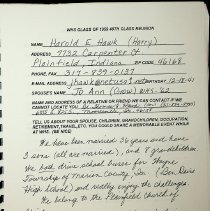 WHS CLASS OF 1959 45TH CLASS REUNION
NAME Harold E. Hawk (Harry)
ADDRESS 7752 Carpenter Ct
Plainfield, Indiana ZIP 46168
PHONE, FAX 317-839-0137
E-MAIL ADDRESS jhawk@netusa1.net BIRTHDAY
SPOUSE'S NAME Jo Ann (Crow) WHS-'62
NAME AND ADDRESS OF A RELATIVE OR FRIEND WE CAN CONTACT IF
WE CANNOT LOCATE YOU.
TELL US ABOUT YOUR SPOUSE, CHILDREN, GRANDCHILDREN, OCCUPATION,
RETIREMENT, TRAVEL, ETC. YOU COULD SHARE A MEMORABLE EVENT WHILE
AT WHS. (BE NICE)
We have been married 36 years and have
3 sons (all are married), and 8 grandchildren.
We both drive school buses for Wayne
Township of Marion County, In. (Ben Davis
High School) and really enjoy the challenges.
We belong to the Plainfield church of